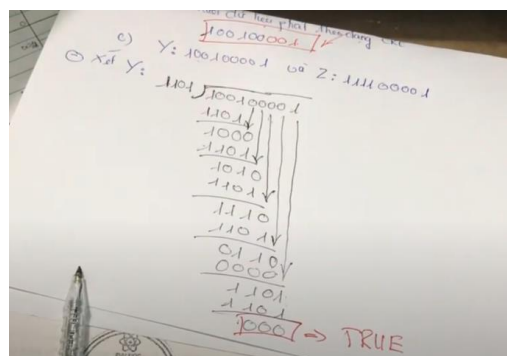 dữ liệu phát
100100001
c) Y: 100100001 và Z: 111100001
⊖ Xét Y:
1101 100100001
1101
1000
1101
1010
1101
1110
1101
0110
0000
1101
1101
000 => TRUE